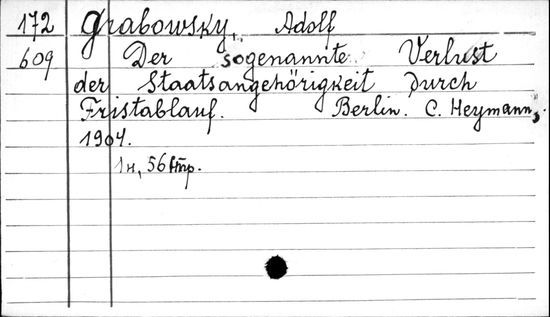 172 Grabowsky, Adolf
609 Der sogenannte Verlust
der Staatsangehörigkeit durch
Fristablauf. Berlin. C. Heymann,
1904.
56